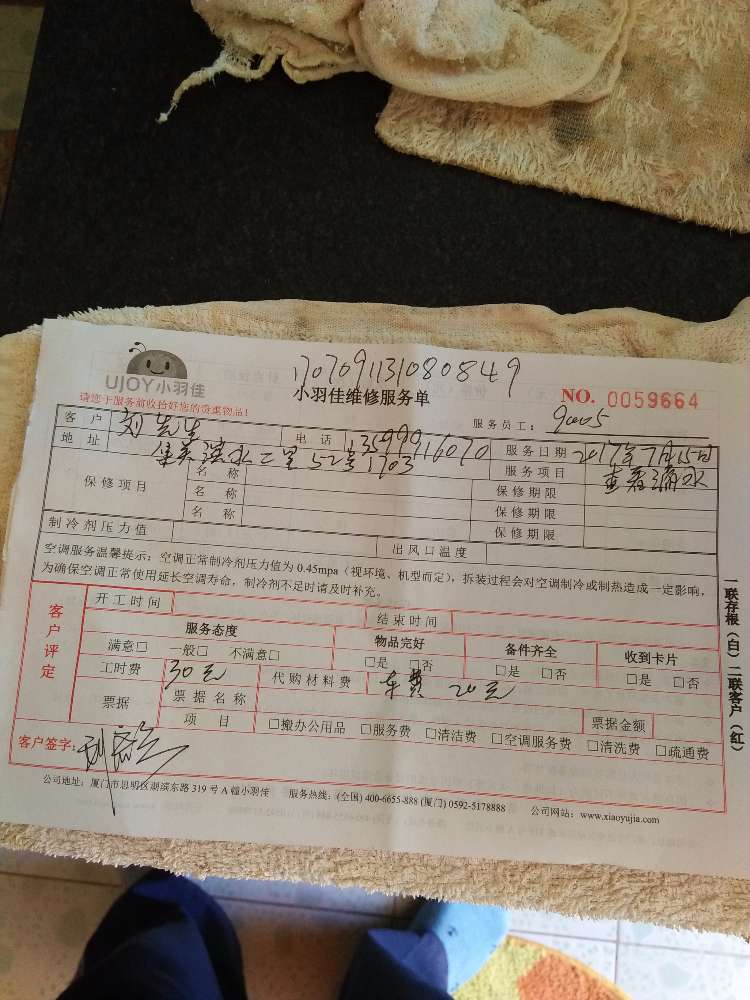 UJOY小羽佳
1707091131080849
请您于服务前收拾好您的贵重物品!
小羽佳维修服务单
NO. 0059664
服务员工: 9005
客户 刘先生 电话 13599916070 服务日期 2017年7月15日
地址 集美滨水二里52号1703 服务项目 查看滴水
保修项目 名称 保修期限
名称 保修期限
名称 保修期限
制冷剂压力值 出风口温度
空调服务温馨提示: 空调正常制冷剂压力值为 0.45mpa（视环境、机型而定），拆装过程会对空调制冷或制热造成一定影响，
为确保空调正常使用延长空调寿命，制冷剂不足时请及时补充。
客户评定
开工时间 结束时间
服务态度 物品完好 备件齐全 收到卡片
满意□ 一般□ 不满意□ □是 □否 □是 □否 □是 □否
工时费 30元 代购材料费 车费 20元
票据 票据名称 票据金额
项目 □搬办公用品 □服务费 □清洁费 □空调服务费 □清洗费 □疏通费
客户签字:
公司地址: 厦门市思明区湖滨东路 319 号 A 幢小羽佳 服务热线: (全国) 400-6655-888 (厦门) 0592-5178888 公司网站: www.xiaoyujia.com
一联存根（白）二联客户（红）